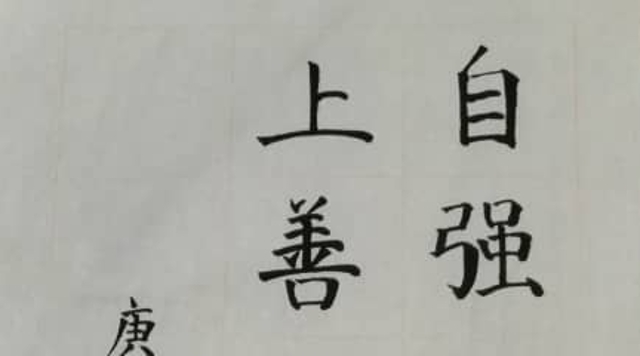 自强
上善
庚